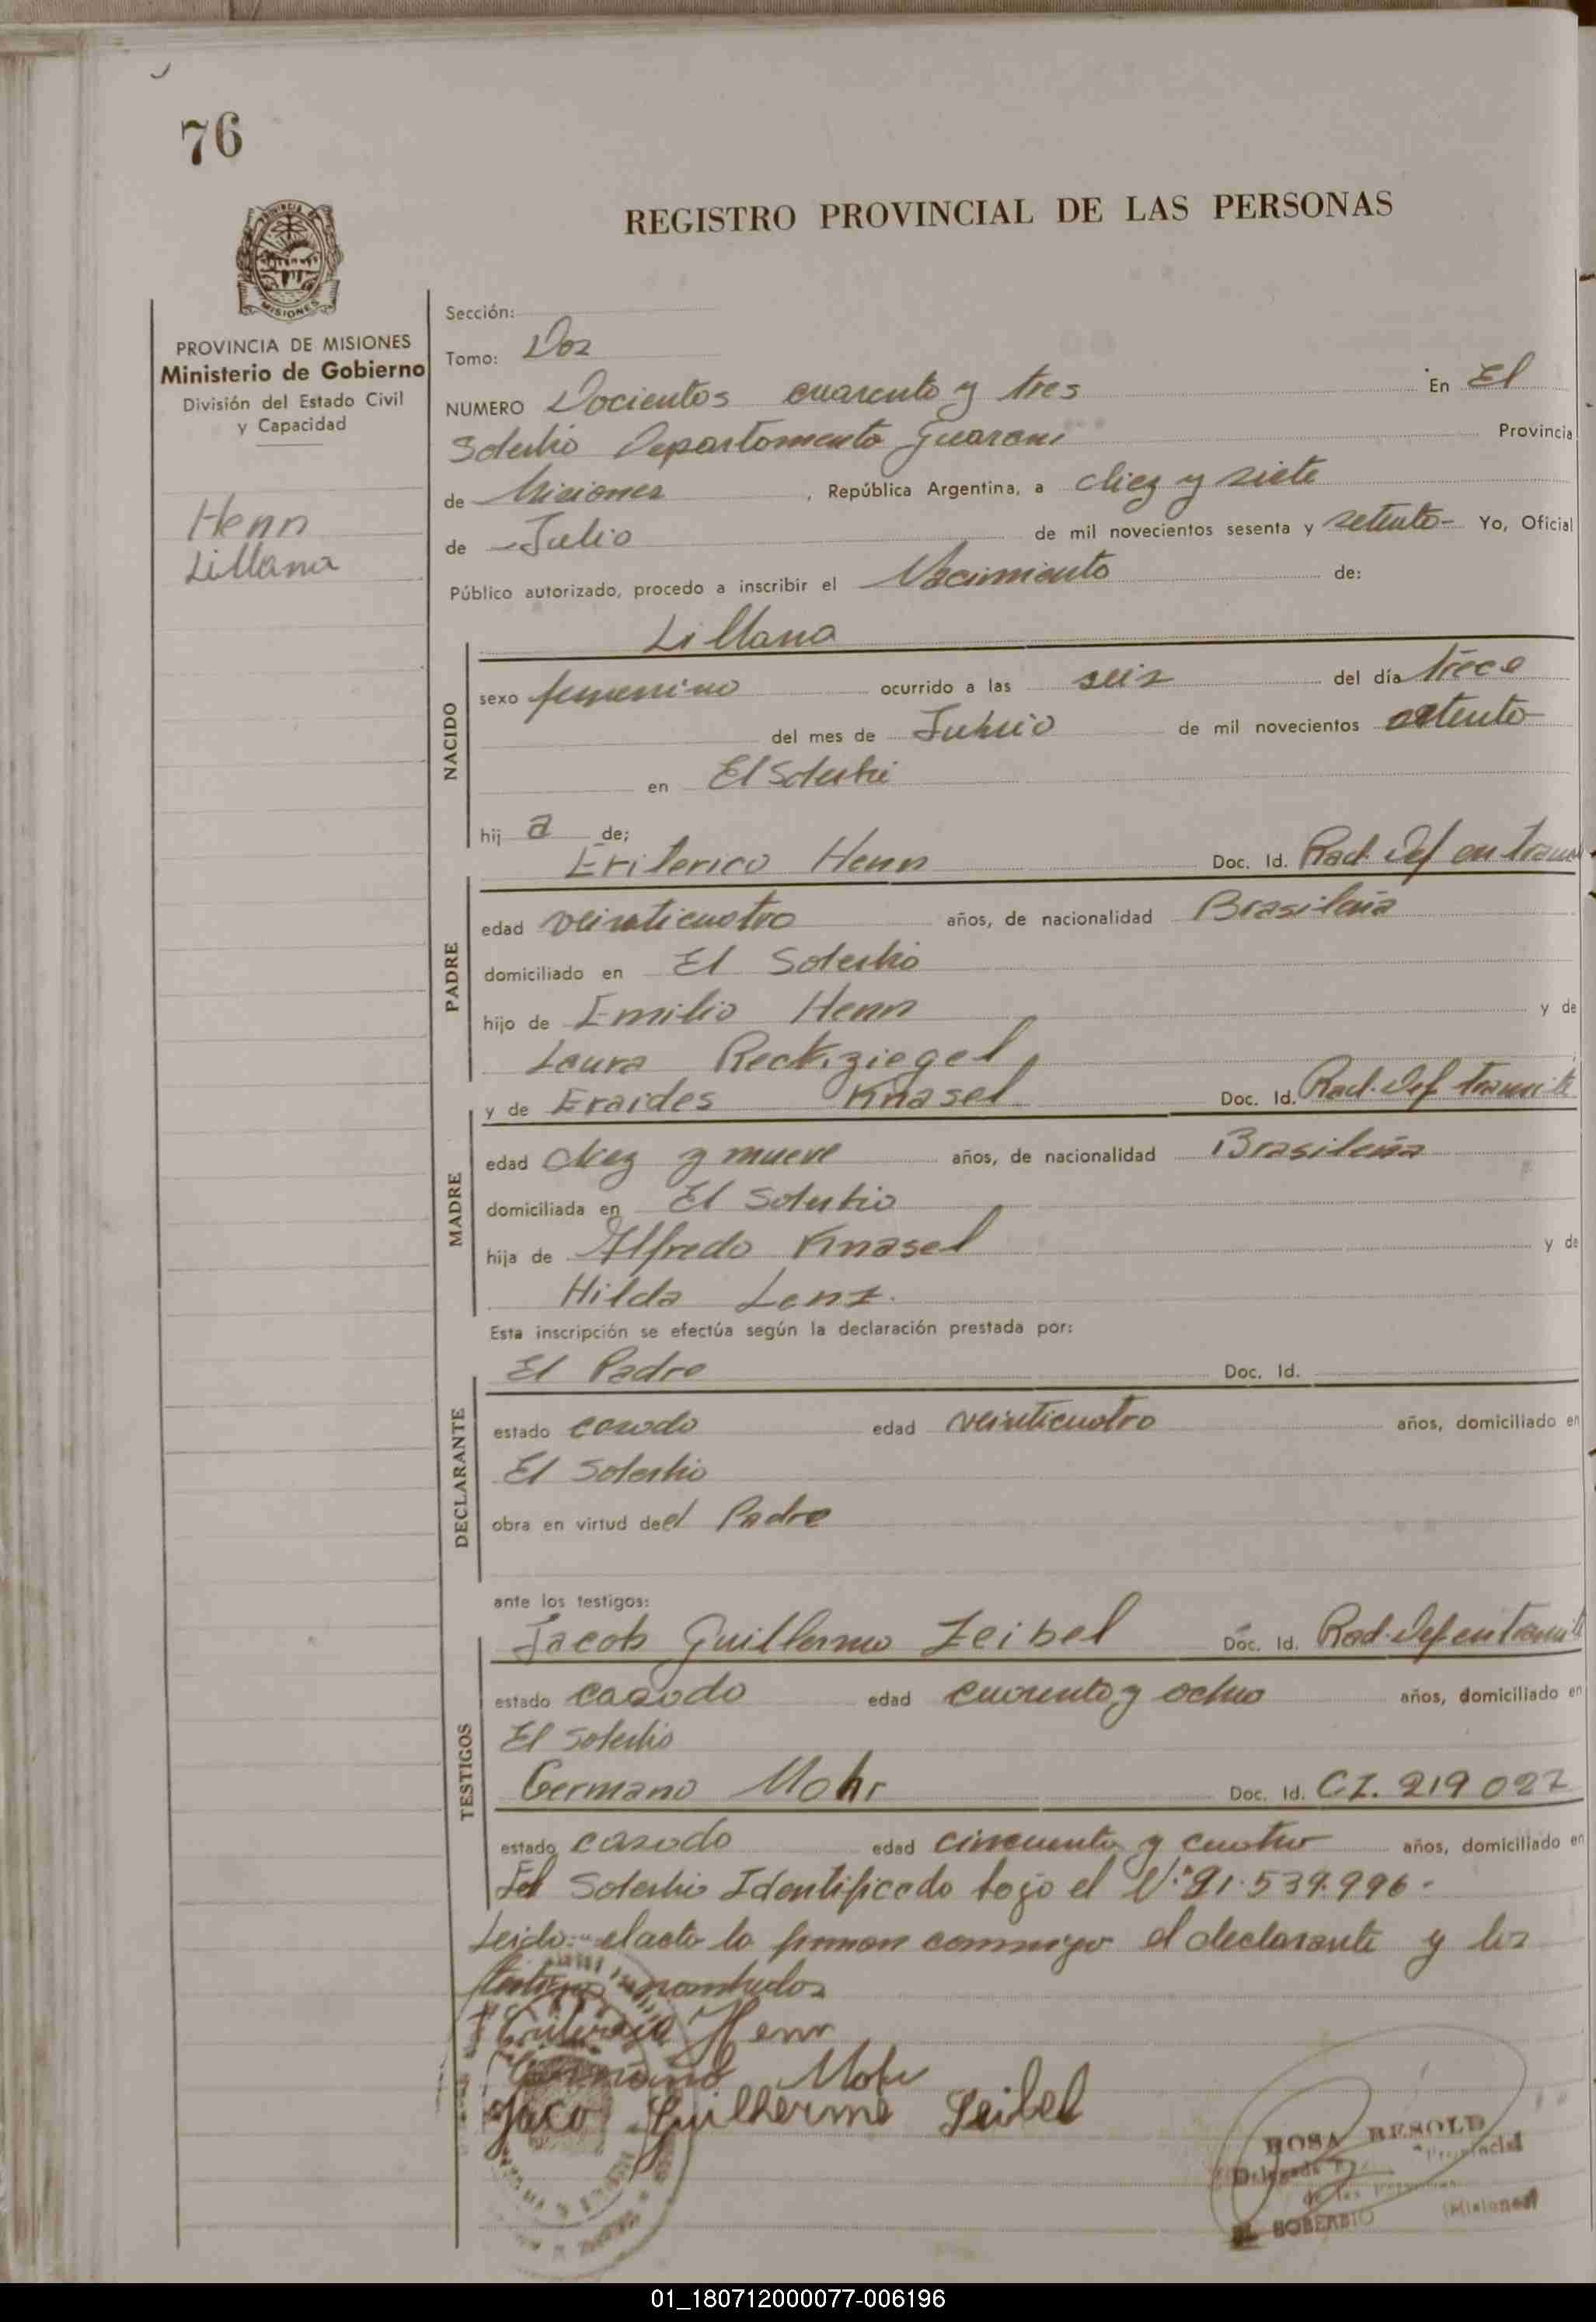 76
REGISTRO PROVINCIAL DE LAS PERSONAS
PROVINCIA DE MISIONES
Ministerio de Gobierno
División del Estado Civil
y Capacidad
Henn
Liliana
Sección:
Tomo: Dos
NUMERO Docientos cuarenta y tres En El
Soberbio Departamento Guarani Provincia
de Misiones, República Argentina, a diez y siete
de Julio de mil novecientos sesenta y setenta- Yo, Oficial
Público autorizado, procedo a inscribir el Nacimiento de:
Liliana
NACIDO
sexo femenino ocurrido a las seis del día trece
del mes de de mil novecientos setenta
en El Soberbio
hij a de;
Eriterico Henn Doc. Id. Rad. Def en tramite
PADRE
edad veinticuatro años, de nacionalidad Brasileña
domiciliado en El Soberbio
hijo de Emilio Henn y de
Laura Reckziegel
y de Eraides Knasel Doc. Id. Rad. Def tramite
MADRE
edad diez y nueve años, de nacionalidad Brasileña
domiciliada en El Soberbio
hija de Alfredo Knasel y de
Hilda Lenz.
Esta inscripción se efectúa según la declaración prestada por:
El Padre Doc. Id.
DECLARANTE
estado casado edad veinticuatro años, domiciliado en
El Soberbio
obra en virtud de el Padre
ante los testigos:
Jacob Guillermo Zeibel Doc. Id. Rad. Def en tramit
TESTIGOS
estado casado edad cuarenta y ocho años, domiciliado en
El Soberbio
Germano Mohr Doc. Id. C.I. 219 027
estado casado edad cincuenta y cuatro años, domiciliado en
El Soberbio Identificado bajo el Nº 21.539.996.-
Leido el acta la firman conmigo el declarante y los
testigos nombrados
Henn
Germano Mohr
Jaco Guilherme Seibel
ROSA BESOLD
Delegada Provincial
de las Personas
EL SOBERBIO (Misiones)
01_180712000077-006196